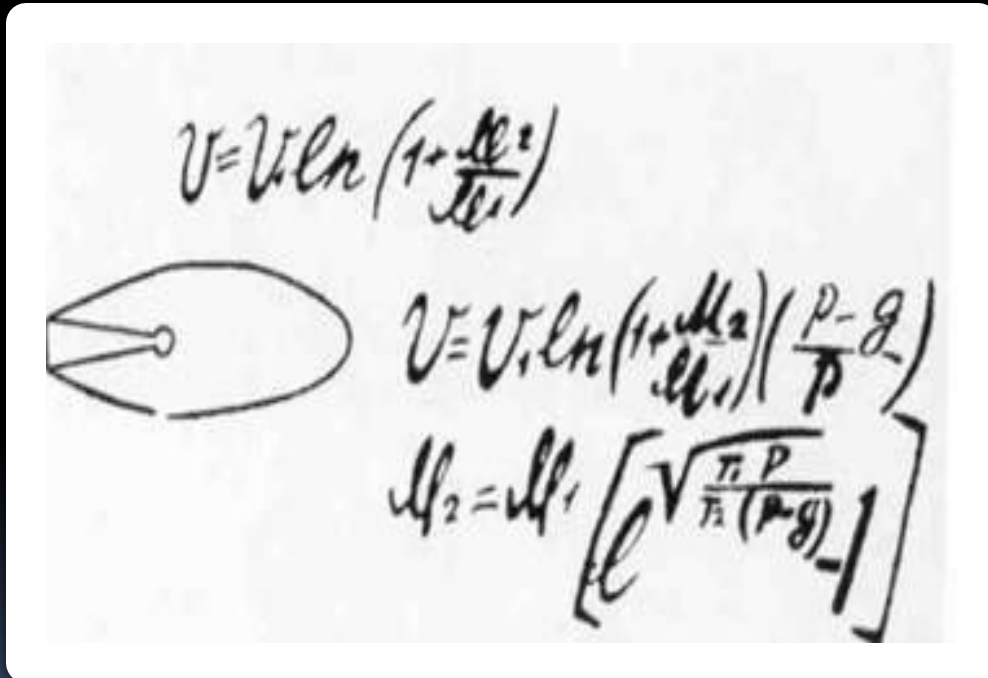 V=V₁ln(1+M₂/M₁)
V=V₁ln(1+M₂/M₁)((p-g)/p)
M₂=M₁[e^√(T₁p/T₂(p-g))-1]